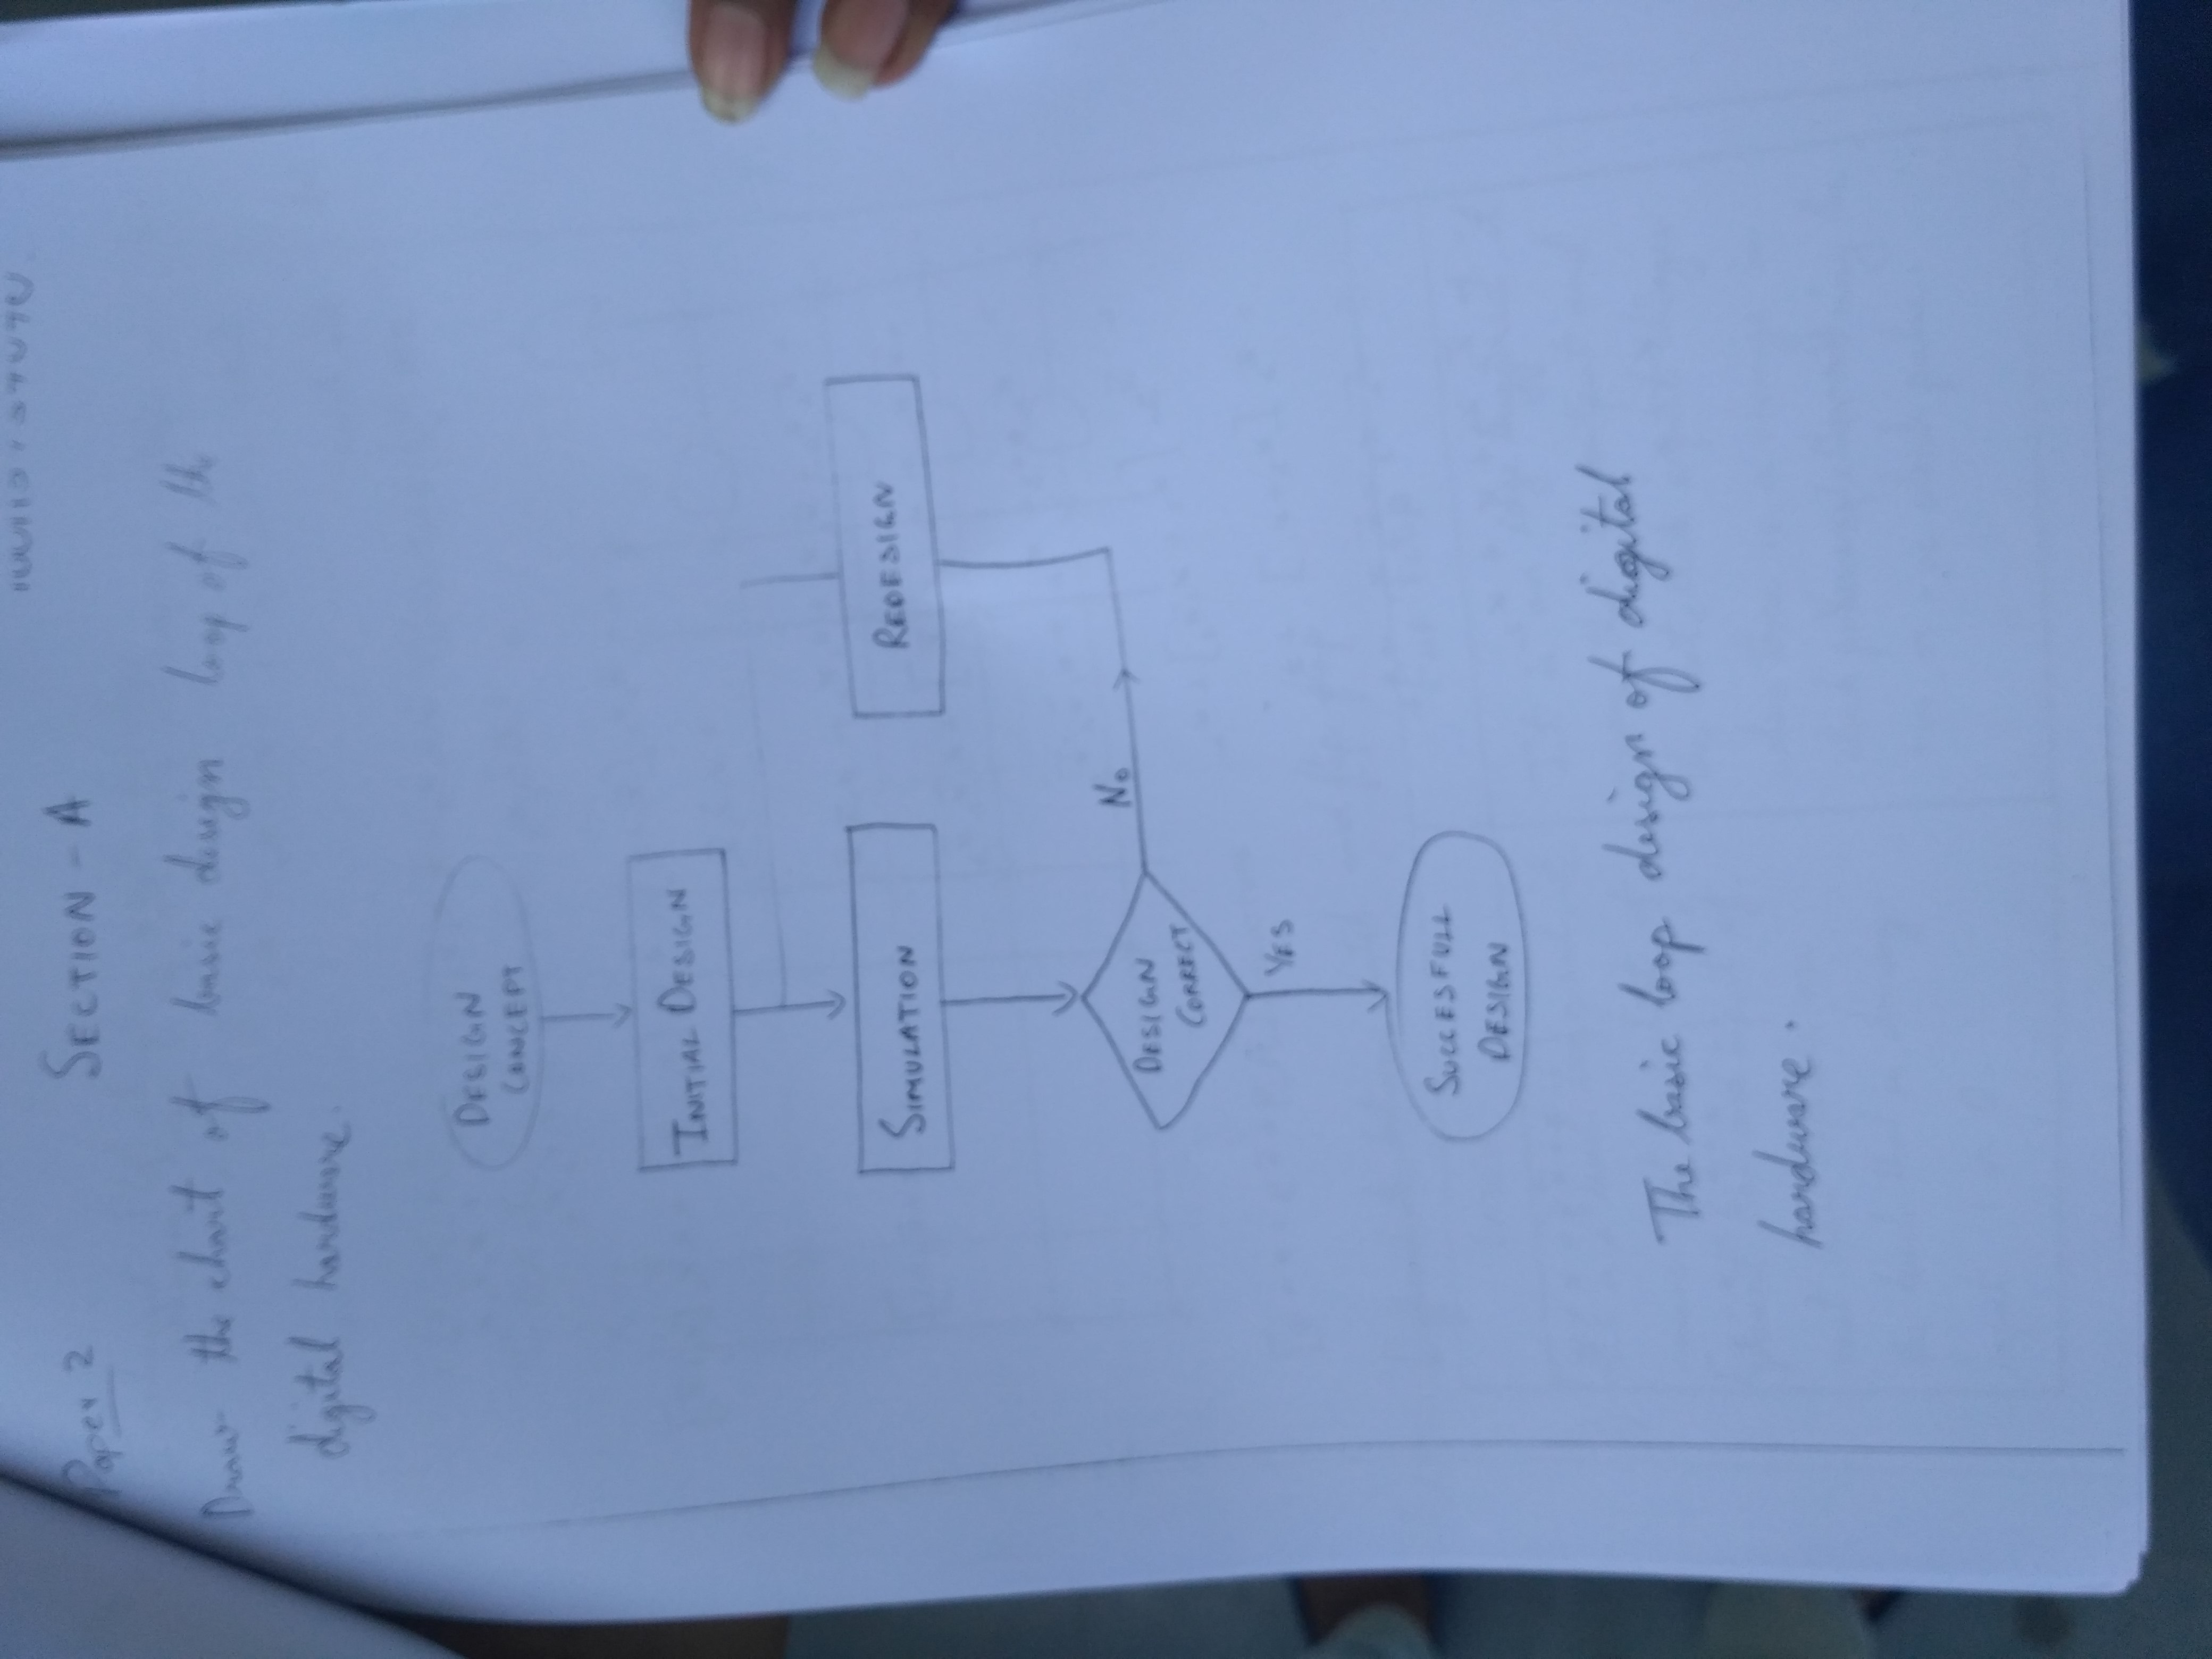 Paper 2
SECTION - A
Draw the chart of basic design loop of the
digital hardware.
DESIGN
CONCEPT
INITIAL DESIGN
SIMULATION
REDESIGN
DESIGN
CORRECT
No
YES
SUCCESFULL
DESIGN
The basic loop design of digital
hardware.